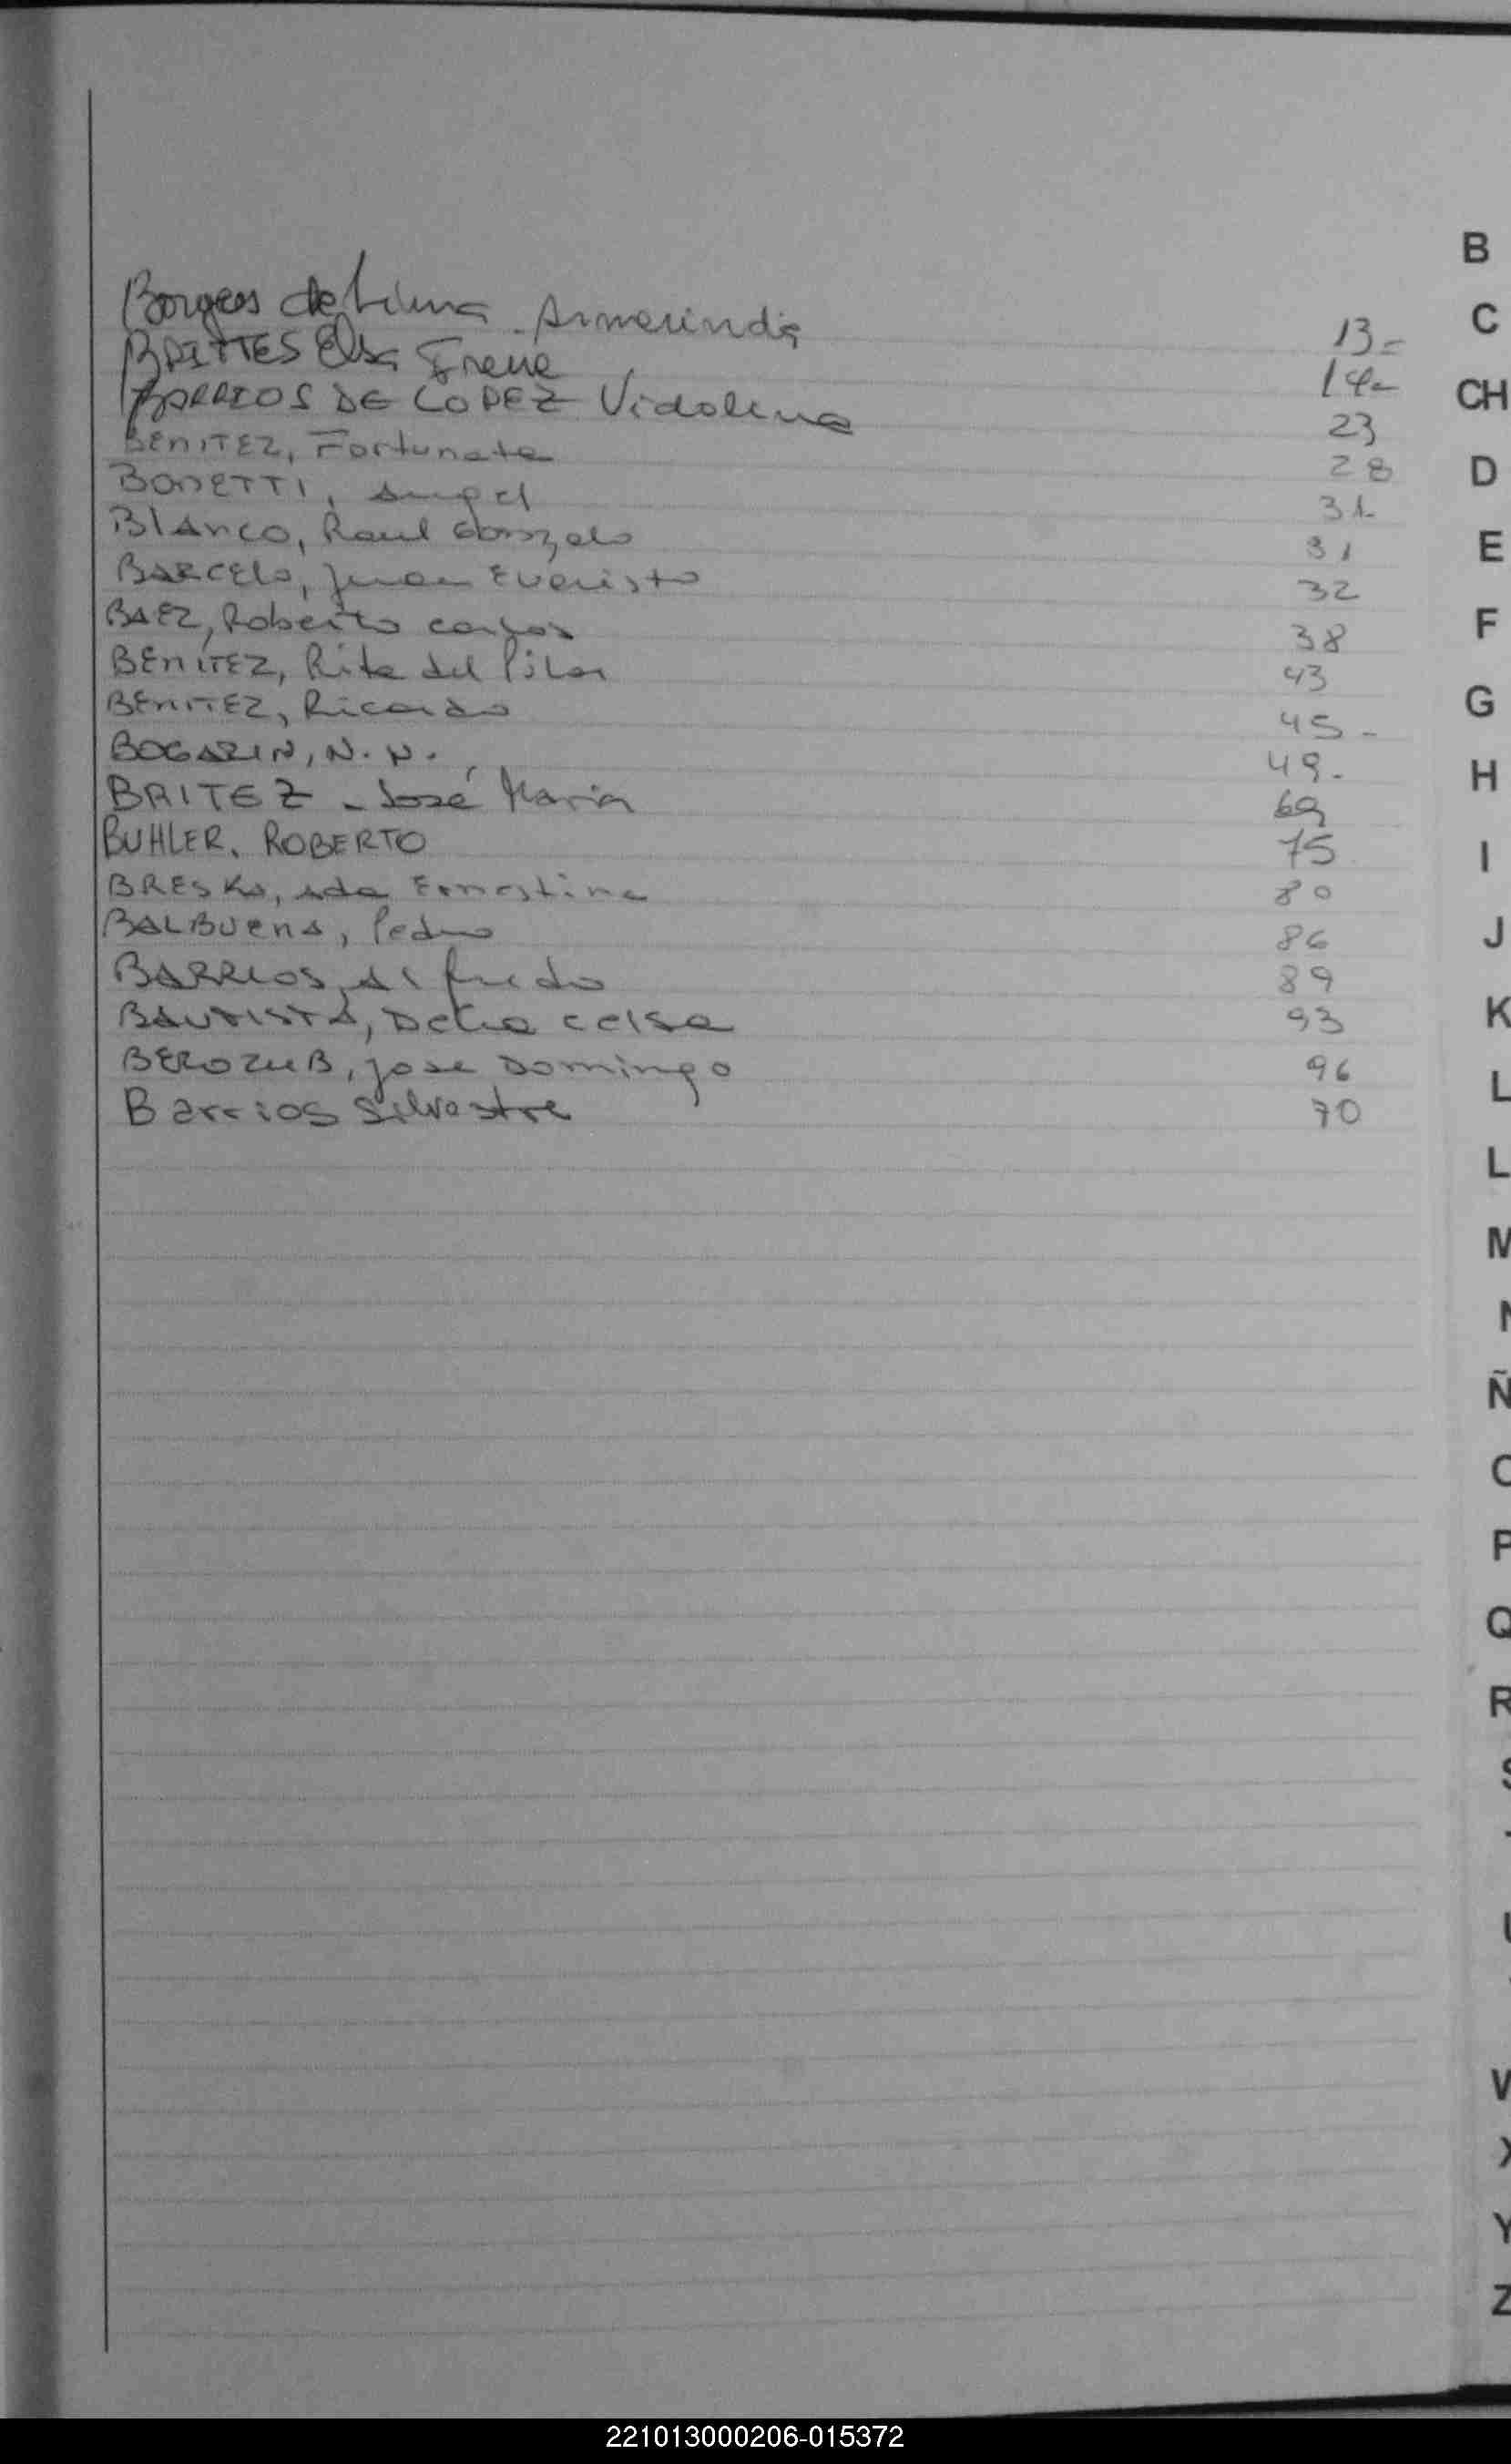 B
Borges de Lima - Armerinda 13-
C
BRITTES Elsa Irene 14-
CH
BARRIOS DE LOPEZ Vidolina 23
BENITEZ, Fortunata 28
D
BONETTI, Angel 31
Blanco, Raul Gonzalo 31
E
BARCELO, Juan Evaristo 32
BAEZ, Roberto Carlos 38
F
BENITEZ, Rita del Pilar 43
BENITEZ, Ricardo 45-
G
BOGARIN, N.N. 49-
H
BRITEZ - José Maria 69
BUHLER, ROBERTO 75
I
BRESKA, Ada Ernestina 80
BALBUENA, Pedro 86
J
BARRIOS, Alfredo 89
BAUTISTA, Delia Celsa 93
K
BEROZUB, Jose Domingo 96
L
Barrios Silvestre 70
L
M
N
Ñ
O
P
Q
R
S
U
V
X
Y
Z
221013000206-015372